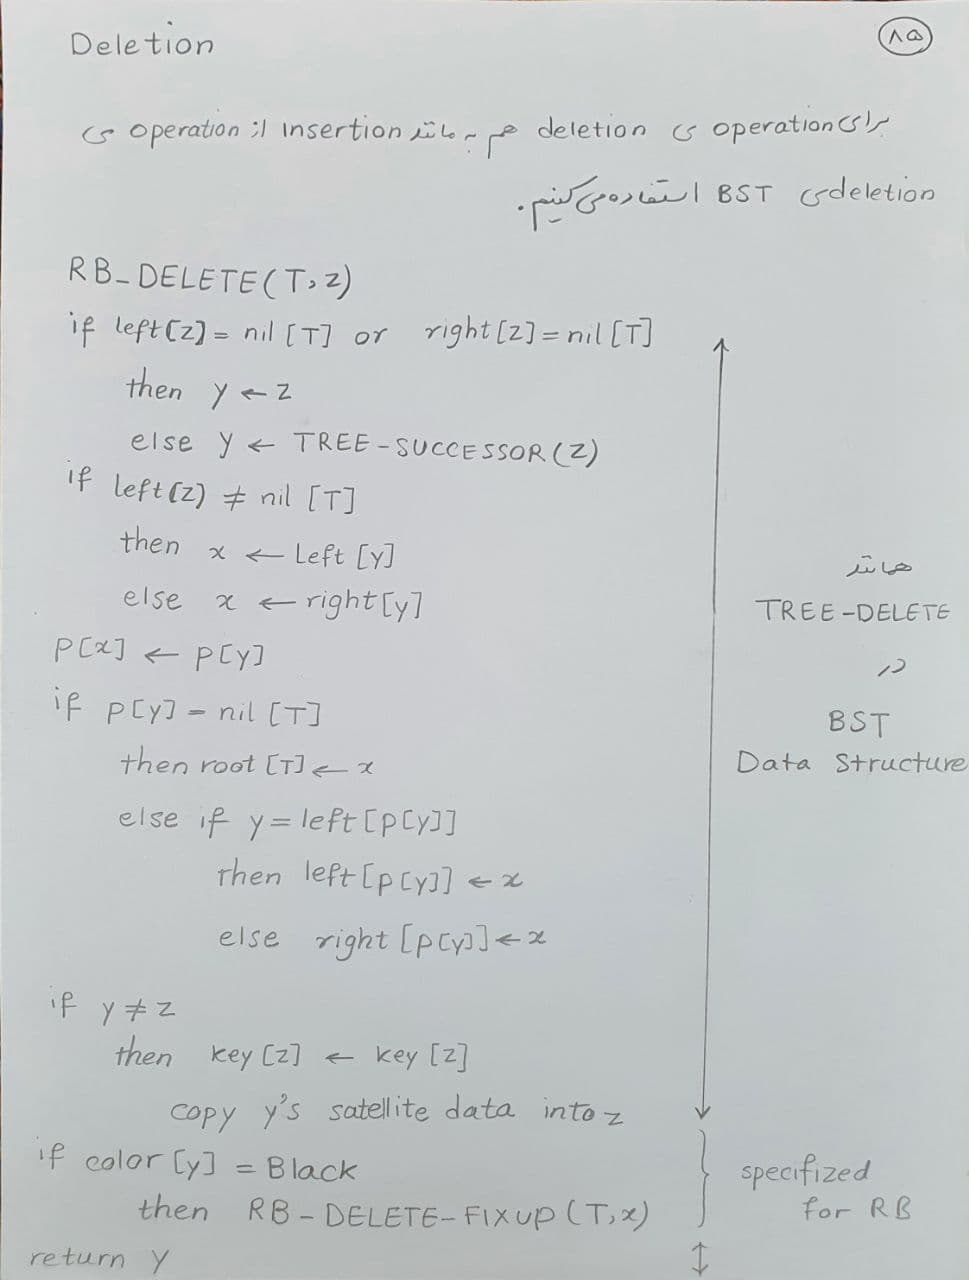 Deletion
۸۵
برای operation ی deletion هم به مانند insertion از operation ی
deletion ی BST استفاده می کنیم.
RB_DELETE(T,z)
if left[z] = nil [T] or right[z] = nil [T]
then y ← z
else y ← TREE-SUCCESSOR(Z)
if left[z] ≠ nil [T]
then x ← Left [y]
else x ← right[y]
P[x] ← P[y]
if P[y] = nil [T]
then root [T] ← x
else if y = left[P[y]]
then left[P[y]] ← x
else right [P[y]] ← x
if y ≠ z
then key [z] ← key [z]
copy y's satellite data into z
if color [y] = Black
then RB-DELETE-FIXUP (T,x)
return y
همانند
TREE-DELETE
در
BST
Data Structure
specifized
for RB